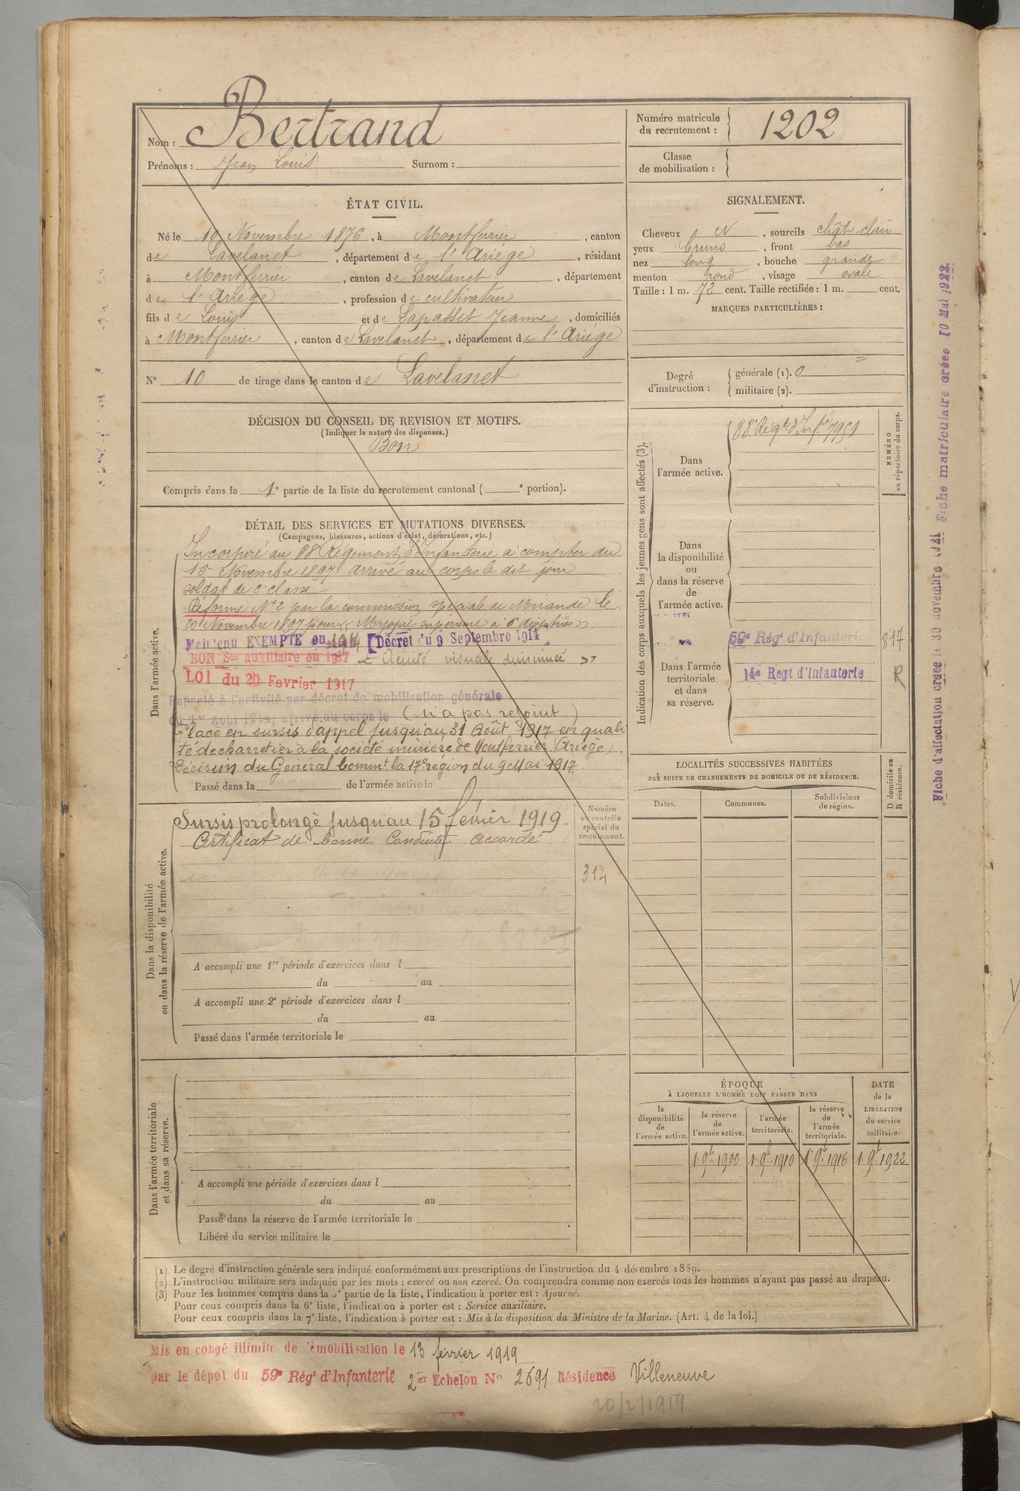 Nom : Bertrand
Prénoms : Jean Louis Surnom :
Numéro matricule du recrutement : 1202
Classe de mobilisation :
ÉTAT CIVIL.
Né le 10 Novembre 1876, à Montferrier, canton
de Lavelanet, département de l'Ariège, résidant
à Montferrier, canton de Lavelanet, département
de l'Ariège, profession de cultivateur
fils de Louis et de Lapasset Jeanne, domiciliés
à Montferrier, canton de Lavelanet, département de l'Ariège
N° 10 de tirage dans le canton de Lavelanet
SIGNALEMENT.
Cheveux N, sourcils chât clair
yeux bruns, front bas
nez long, bouche grande
menton rond, visage ovale
Taille : 1 m. 72 cent. Taille rectifiée : 1 m. cent.
MARQUES PARTICULIÈRES :
Degré d'instruction : générale (1). 0
militaire (2).
DÉCISION DU CONSEIL DE REVISION ET MOTIFS.
(Indiquer la nature des dispenses.)
Bon
Compris dans la 1e partie de la liste du recrutement cantonal ( e portion).
DÉTAIL DES SERVICES ET MUTATIONS DIVERSES.
(Campagnes, blessures, actions d'éclat, décorations, etc.)
Dans l'armée active.
Incorporé au 88e Régiment d'Infanterie à compter du
15 Novembre 1897 arrivé au corps le dit jour
soldat de 2e classe
Réformé N° 2 par la commission spéciale de Mirande le
Novembre 1897 pour « Myopie supérieure à 6 dioptries »
Maintenu EXEMPTÉ en 1914 [Décret du 9 Septembre 1914
BON Sce auxiliaire en 1917 « Acuité visuelle diminuée »
LOI du 20 Fevrier 1917
Rappelé à l'activité par décret de mobilisation générale
du 1er Août 1914, arrivé au corps le (n'a pas rejoint)
Placé en sursis d'appel jusqu'au 31 Août 1917 en quali
té de charretier à la société minière de Montferrier (Ariège).
Décision du Général Commt la 17e région du 9 Mai 1917
Passé dans la de l'armée active le
Dans la disponibilité ou dans la réserve de l'armée active.
Sursis prolongé jusqu'au 15 février 1919.
Certificat de bonne conduite accordé
Numéro au contrôle spécial du recrutement.
314
A accompli une 1re période d'exercices dans l
du au
A accompli une 2e période d'exercices dans l
du au
Passé dans l'armée territoriale le
Dans l'armée territoriale et dans sa réserve.
A accompli une période d'exercices dans l
du au
Passé dans la réserve de l'armée territoriale le
Libéré du service militaire le
Indication des corps auxquels les jeunes gens sont affectés (3).
NUMÉRO au répertoire du corps.
Dans l'armée active.
88e Régt d'Infie 7951
Dans la disponibilité ou dans la réserve de l'armée active.
59e Rég' d'Infanterie 817
Dans l'armée territoriale et dans sa réserve.
14e Regt d'Infanterie R
LOCALITÉS SUCCESSIVES HABITÉES
PAR SUITE DE CHANGEMENTS DE DOMICILE OU DE RÉSIDENCE.
Dates. Communes. Subdivisions de région. D domicile ou R résidence.
ÉPOQUE
À LAQUELLE L'HOMME DOIT PASSER DANS
la disponibilité de l'armée active. la réserve de l'armée active. l'armée territoriale. la réserve de l'armée territoriale. DATE de la LIBÉRATION du service militaire.
1 9bre 1900 1 9bre 1910 1 9bre 1916 1 9bre 1922
(1) Le degré d'instruction générale sera indiqué conformément aux prescriptions de l'instruction du 4 décembre 1889.
(2) L'instruction militaire sera indiquée par les mots : exercé ou non exercé. On comprendra comme non exercés tous les hommes n'ayant pas passé au drapeau.
(3) Pour les hommes compris dans la 5e partie de la liste, l'indication à porter est : Ajourné.
Pour ceux compris dans la 6e liste, l'indication à porter est : Service auxiliaire.
Pour ceux compris dans la 7e liste, l'indication à porter est : Mis à la disposition du Ministre de la Marine. (Art. 4 de la loi.)
Mis en congé illimité de démobilisation le 13 février 1919
par le dépôt du 59e Rég' d'Infanterie 2er Echelon N° 2691 Résidence Villeneuve
20/2/1919
Fiche d'affectation créée le 30 novembre Fiche matriculaire créée 10 Mai 1922.